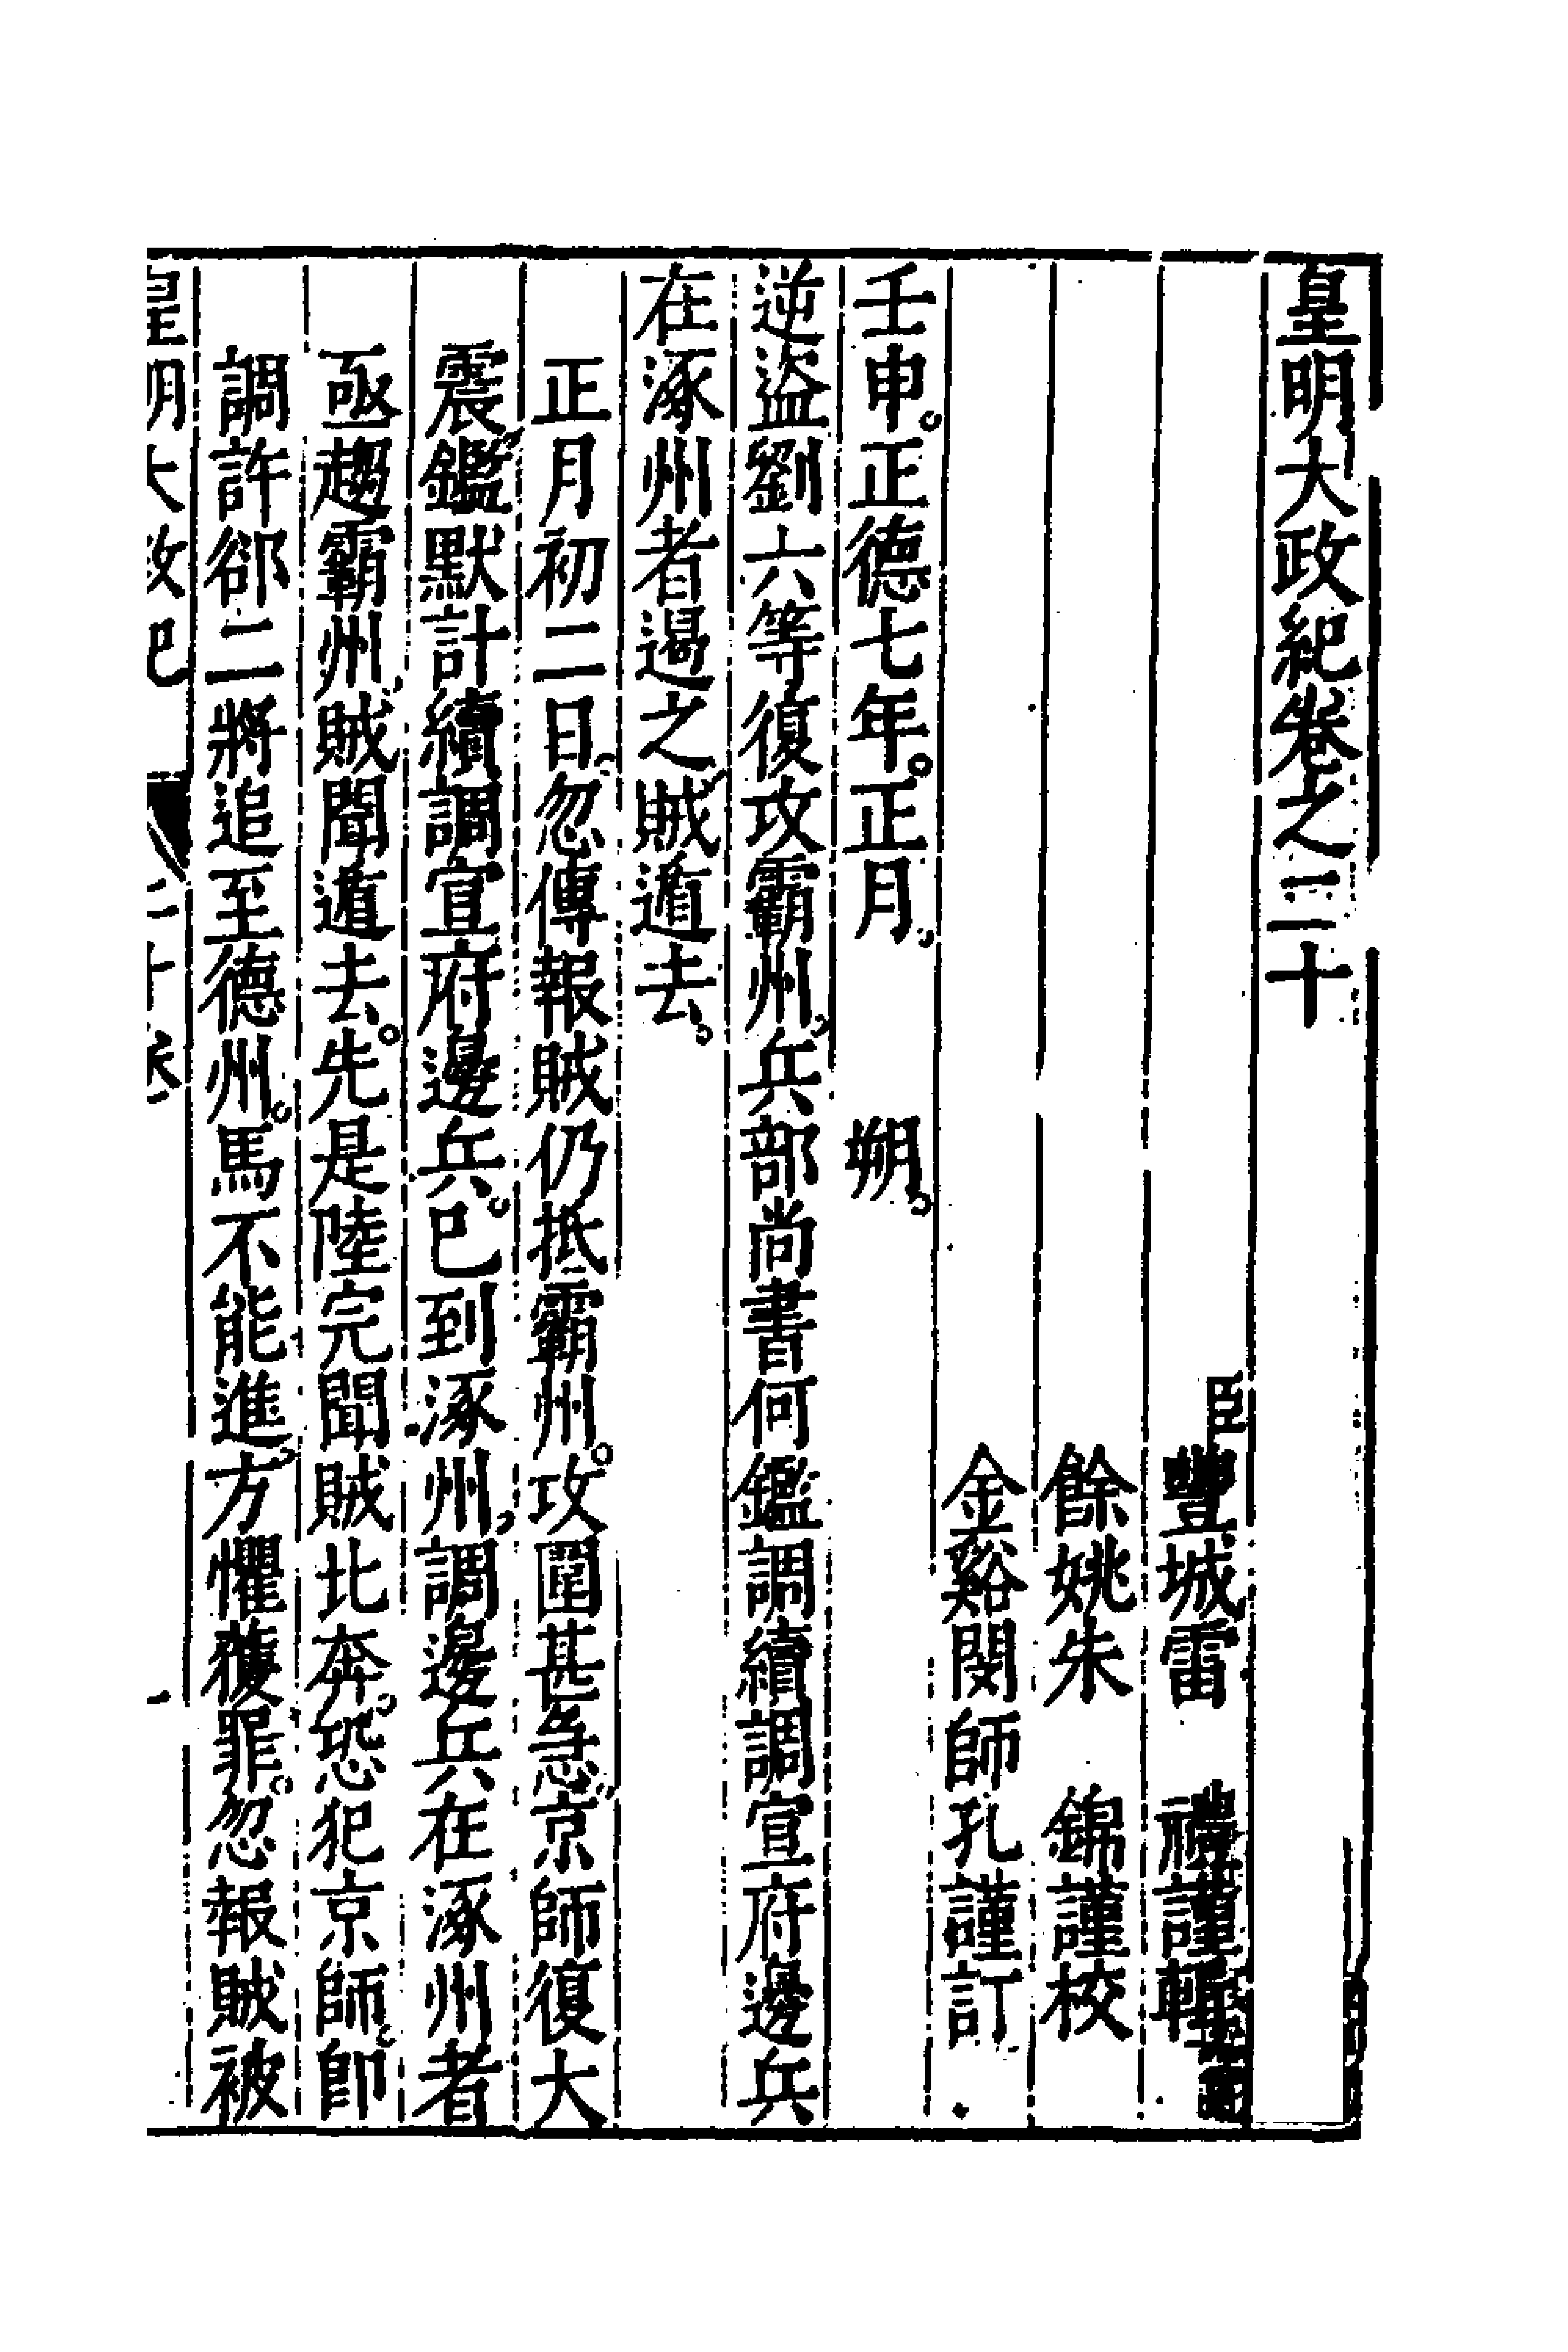 皇明大政紀卷之二十
臣豐城雷　禮謹輯
餘姚朱　錦謹校
金谿閔師孔謹訂
壬申。正德七年。正月、　　朔。
逆盜劉六等復攻霸州、兵部尚書何鑑調續調宣府邊兵
在涿州者遏之、賊遁去。
正月初二日、忽傳報賊仍抵霸州。攻圍甚急、京師復大
震、鑑默計續調宣府邊兵。已到涿州、調邊兵在涿州者
亟趨霸州、賊聞遁去。先是陸完聞賊北奔、恐犯京師、卽
調許郤二將追至德州。馬不能進、方懼獲罪。忽報賊被
皇明大政紀　二十卷　一